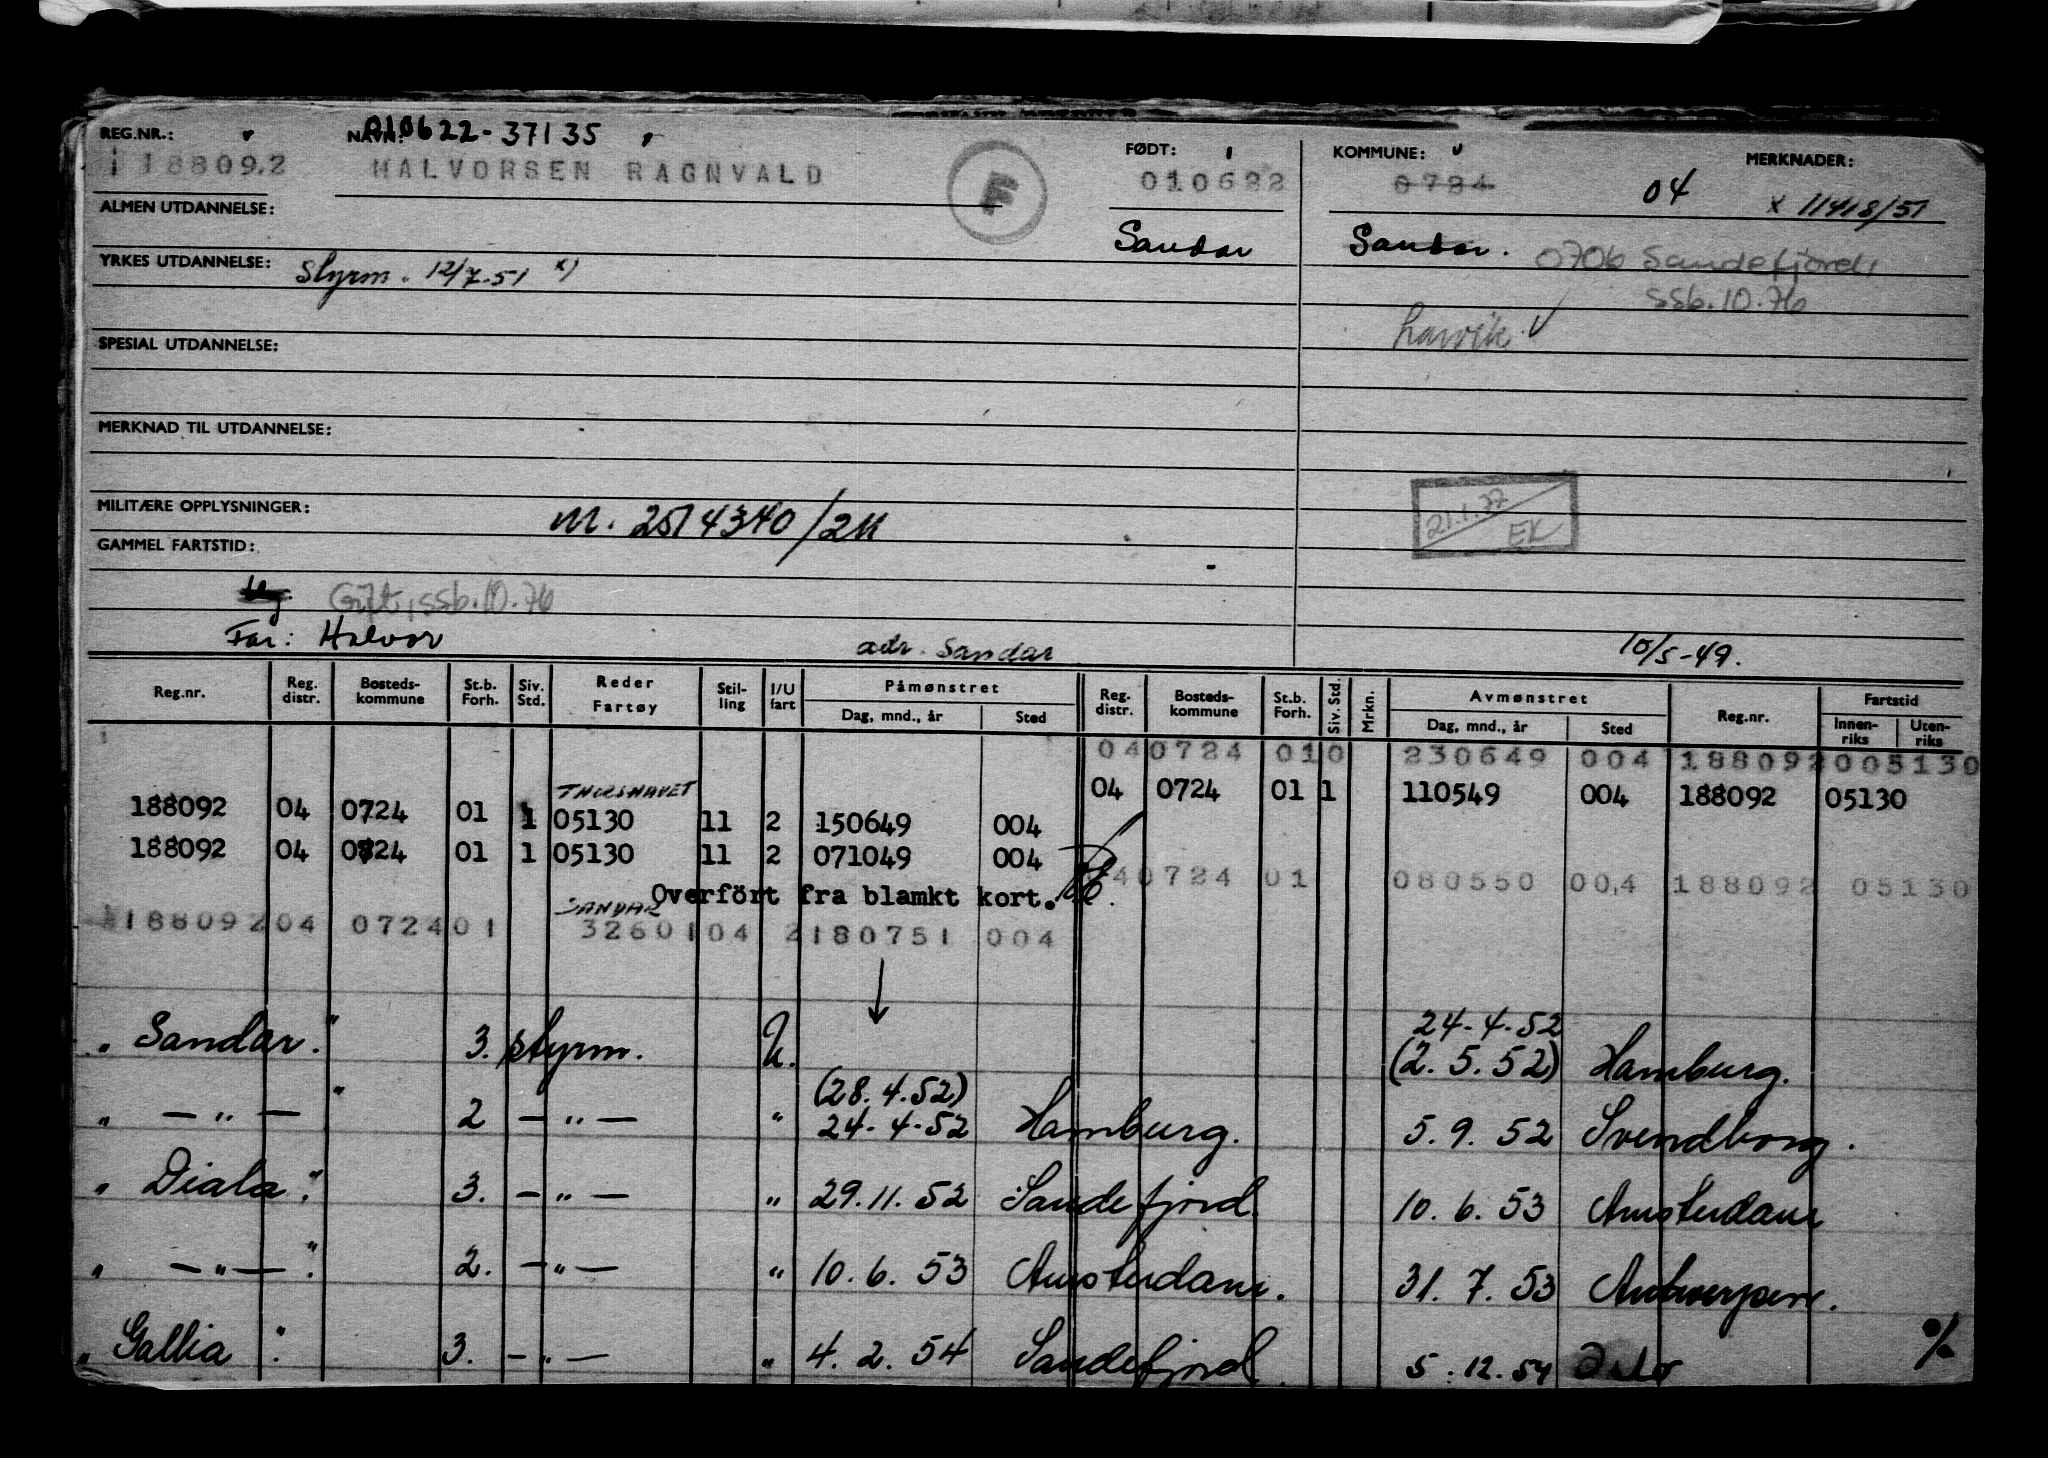 REG.NR.: NAVN: 010622-37135 FØDT: KOMMUNE: MERKNADER:
18809.2 HALVORSEN RAGNVALD F 010622 0724 04 x 11418/51
ALMEN UTDANNELSE: Sandar Sandar. 0706 Sandefjord,
YRKES UTDANNELSE: Styrm. 12/7.51 x) ssb.10.76
Larvik.
SPESIAL UTDANNELSE:
MERKNAD TIL UTDANNELSE:
MILITÆRE OPPLYSNINGER: M. 2514340/2K 21.1.77
EK
GAMMEL FARTSTID:
Ug. Gift, ssb.10.76
Far: Halvor adr. Sandar 10/5-49.
Reg.nr. Reg. distr. Bosteds-kommune St.b. Forh. Siv. Std. Reder Fartøy Stil-ling I/U fart Påmønstret Dag, mnd., år Sted Reg. distr. Bosteds-kommune St.b. Forh. Siv. Std. Mrkn. Avmønstret Dag, mnd., år Sted Reg.nr. Fartstid Innen-riks Uten-riks
040724 010 230649 004 188092 005130
THORSHAVET 04 0724 01 1 110549 004 188092 05130
188092 04 0724 01 1 05130 11 2 150649 004
188092 04 0724 01 1 05130 11 2 071049 004
40724 01 080550 004 188092 05130
Overfört fra blamkt kort.
SANDAR
188092 04 0724 01 32601 04 2 180751 004
24-4-52
" Sandar." 3. styrm. U. (2.5.52) Hamburg.
(28.4.52)
" — " — " 2 — " — " 24-4-52 Hamburg. 5.9.52 Svendborg.
" Diala." 3. — " — " 29.11.52 Sandefjord. 10.6.53 Amsterdam
" — " — " 2. — " — " 10.6.53 Amsterdam. 31.7.53 Antwerpen.
" Gallia " 3. — " — " 4.2.54 Sandefjord. 5.12.54 Oslo
%